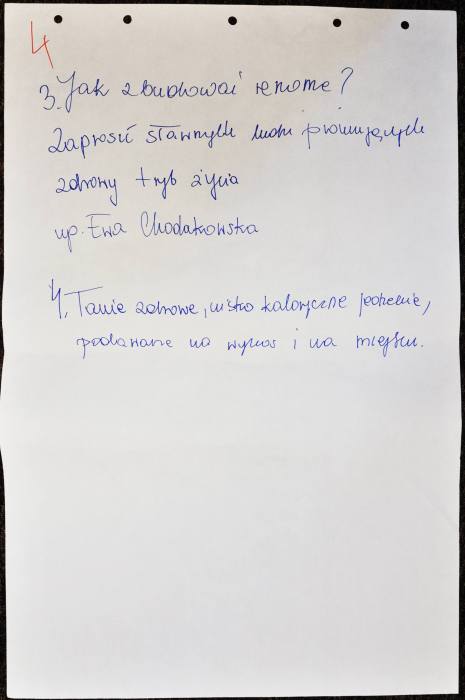 4
3. Jak zbudować renomę?
Zaprosić sławnych ludzi promujących
zdrowy tryb życia
np. Ewa Chodakowska
4. Tanie zdrowe, nisko kaloryczne jedzenie,
podawane na wynos i na miejscu.